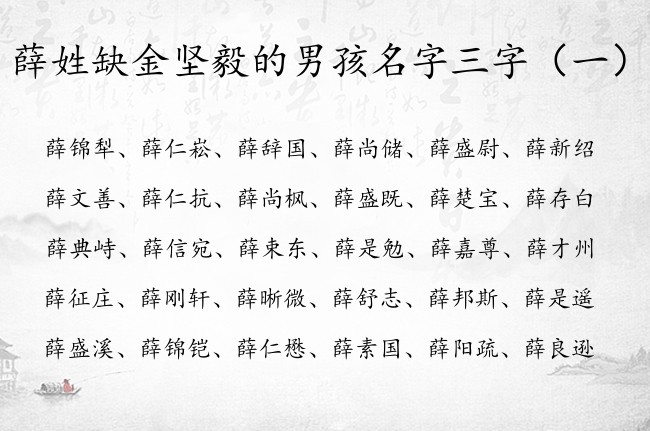 薛姓缺金坚毅的男孩名字三字（一）
薛锦犁、薛仁崧、薛辞国、薛尚储、薛盛尉、薛新绍
薛文善、薛仁抗、薛尚枫、薛盛既、薛楚宝、薛存白
薛典峙、薛信宛、薛束东、薛是勉、薛嘉尊、薛才州
薛征庄、薛刚轩、薛晰微、薛舒志、薛邦斯、薛是遥
薛盛溪、薛锦铠、薛仁懋、薛素国、薛阳疏、薛良逊